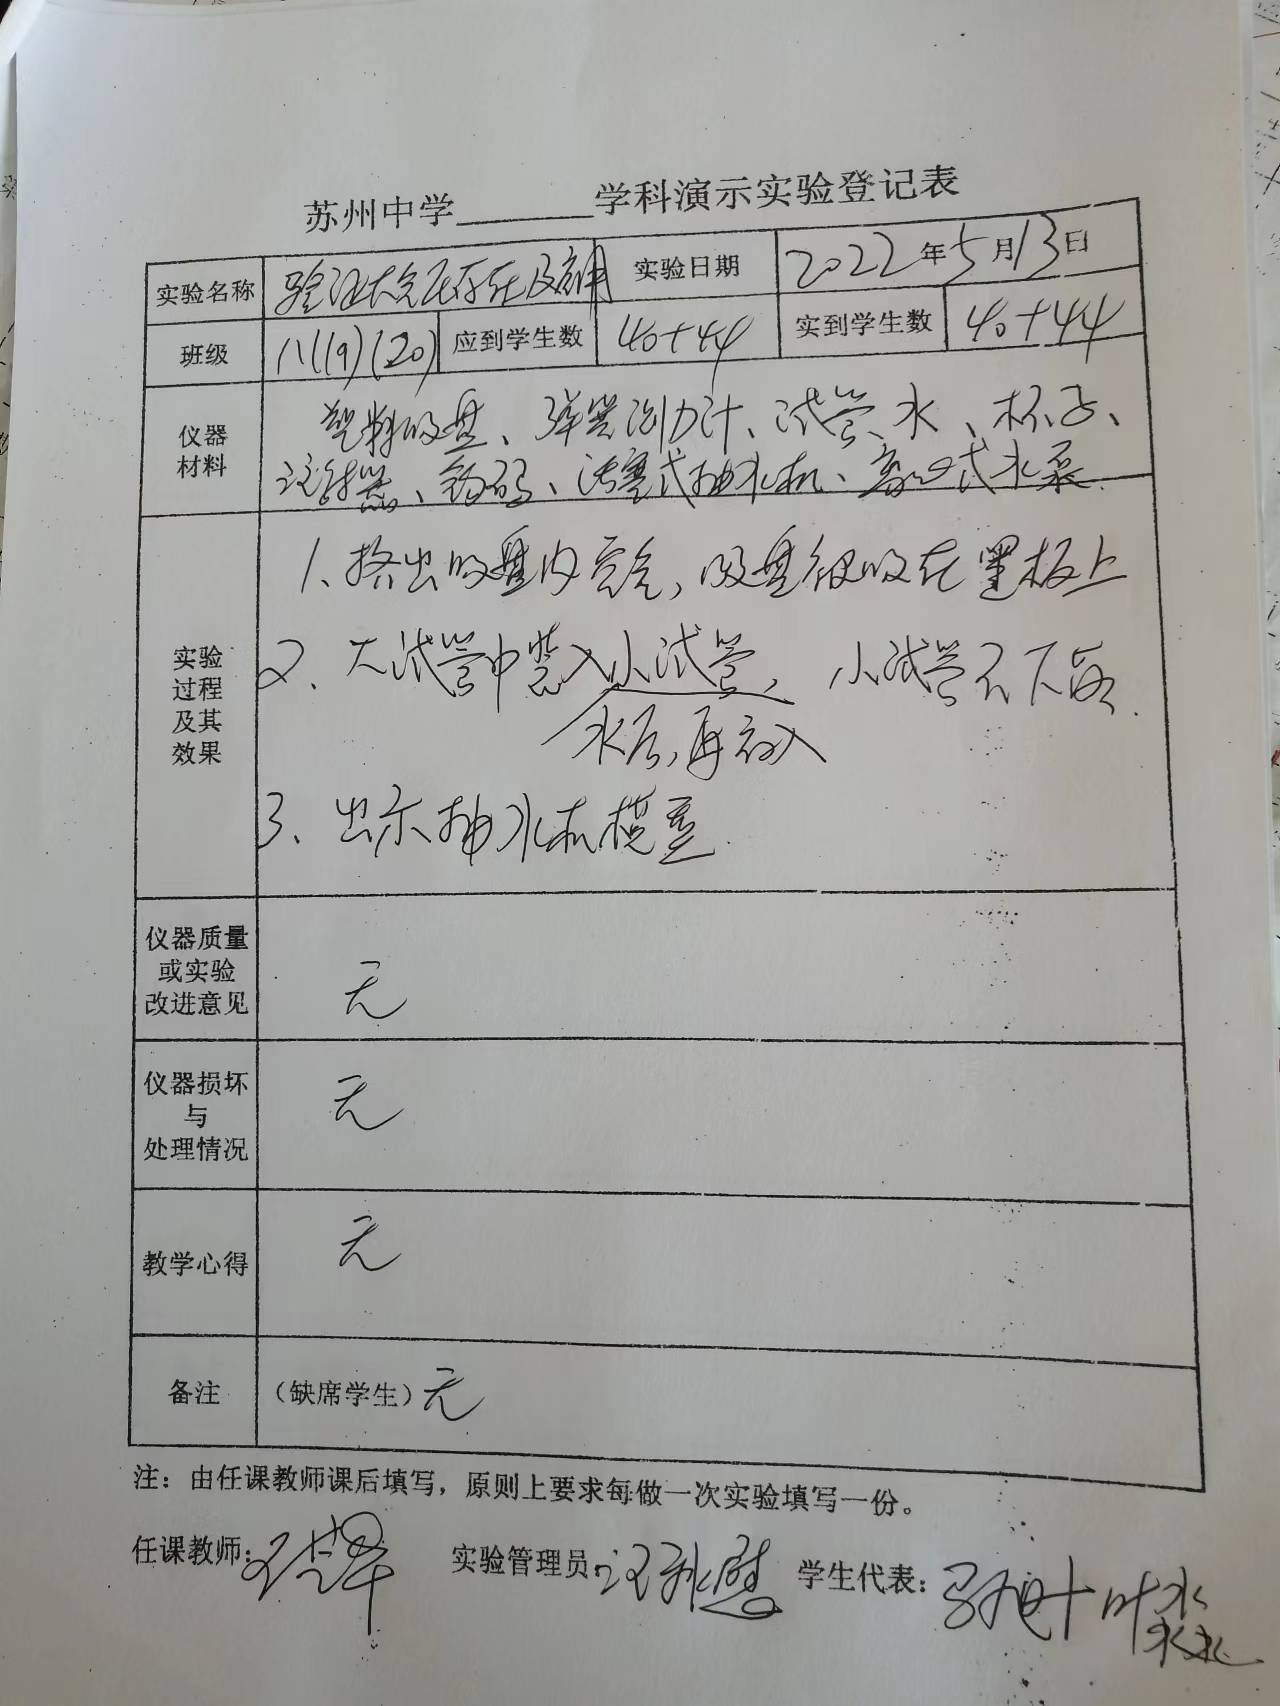 苏州中学______学科演示实验登记表
实验名称 验证大气压存在及应用 实验日期 2022年5月13日
班级 八(19)(20) 应到学生数 40+44 实到学生数 40+44
仪器材料 塑料吸盘、弹簧测力计、试管、水、杯子、
注射器、钩码、活塞式抽水机、离心式水泵.
实验过程及其效果
1、挤出吸盘内空气,吸盘被吸在黑板上
2、大试管中装入小试管, 小试管不下落.
水后,再放入
3、出示抽水机模型.
仪器质量或实验改进意见 无
仪器损坏与处理情况 无
教学心得 无
备注 (缺席学生) 无
注：由任课教师课后填写，原则上要求每做一次实验填写一份。
任课教师: 实验管理员: 学生代表: 叶淼